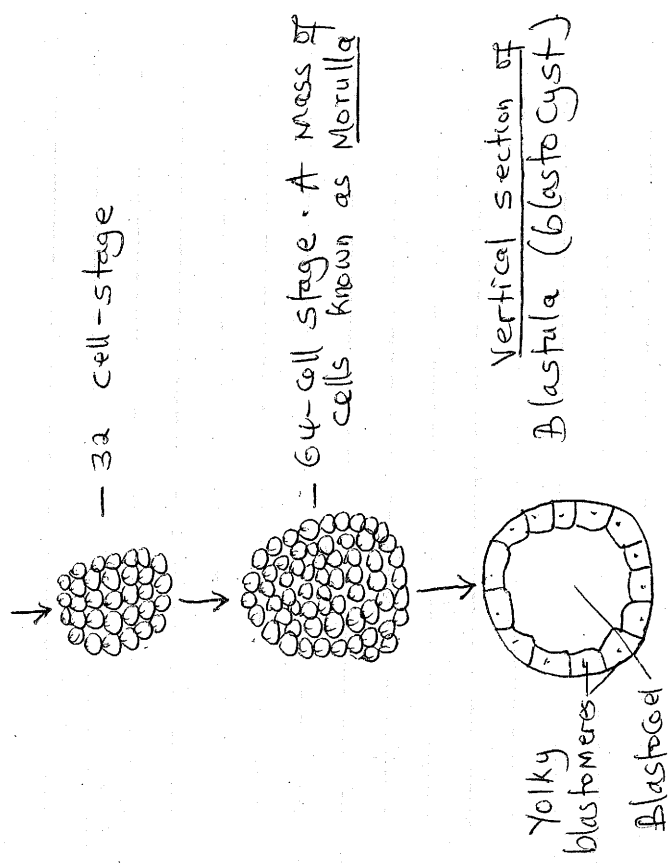 — 32 cell-stage
— 64-cell stage. A mass of
cells known as Morulla
Vertical section of
Blastula (blastocyst)
Yolky
blastomeres
Blastocoel